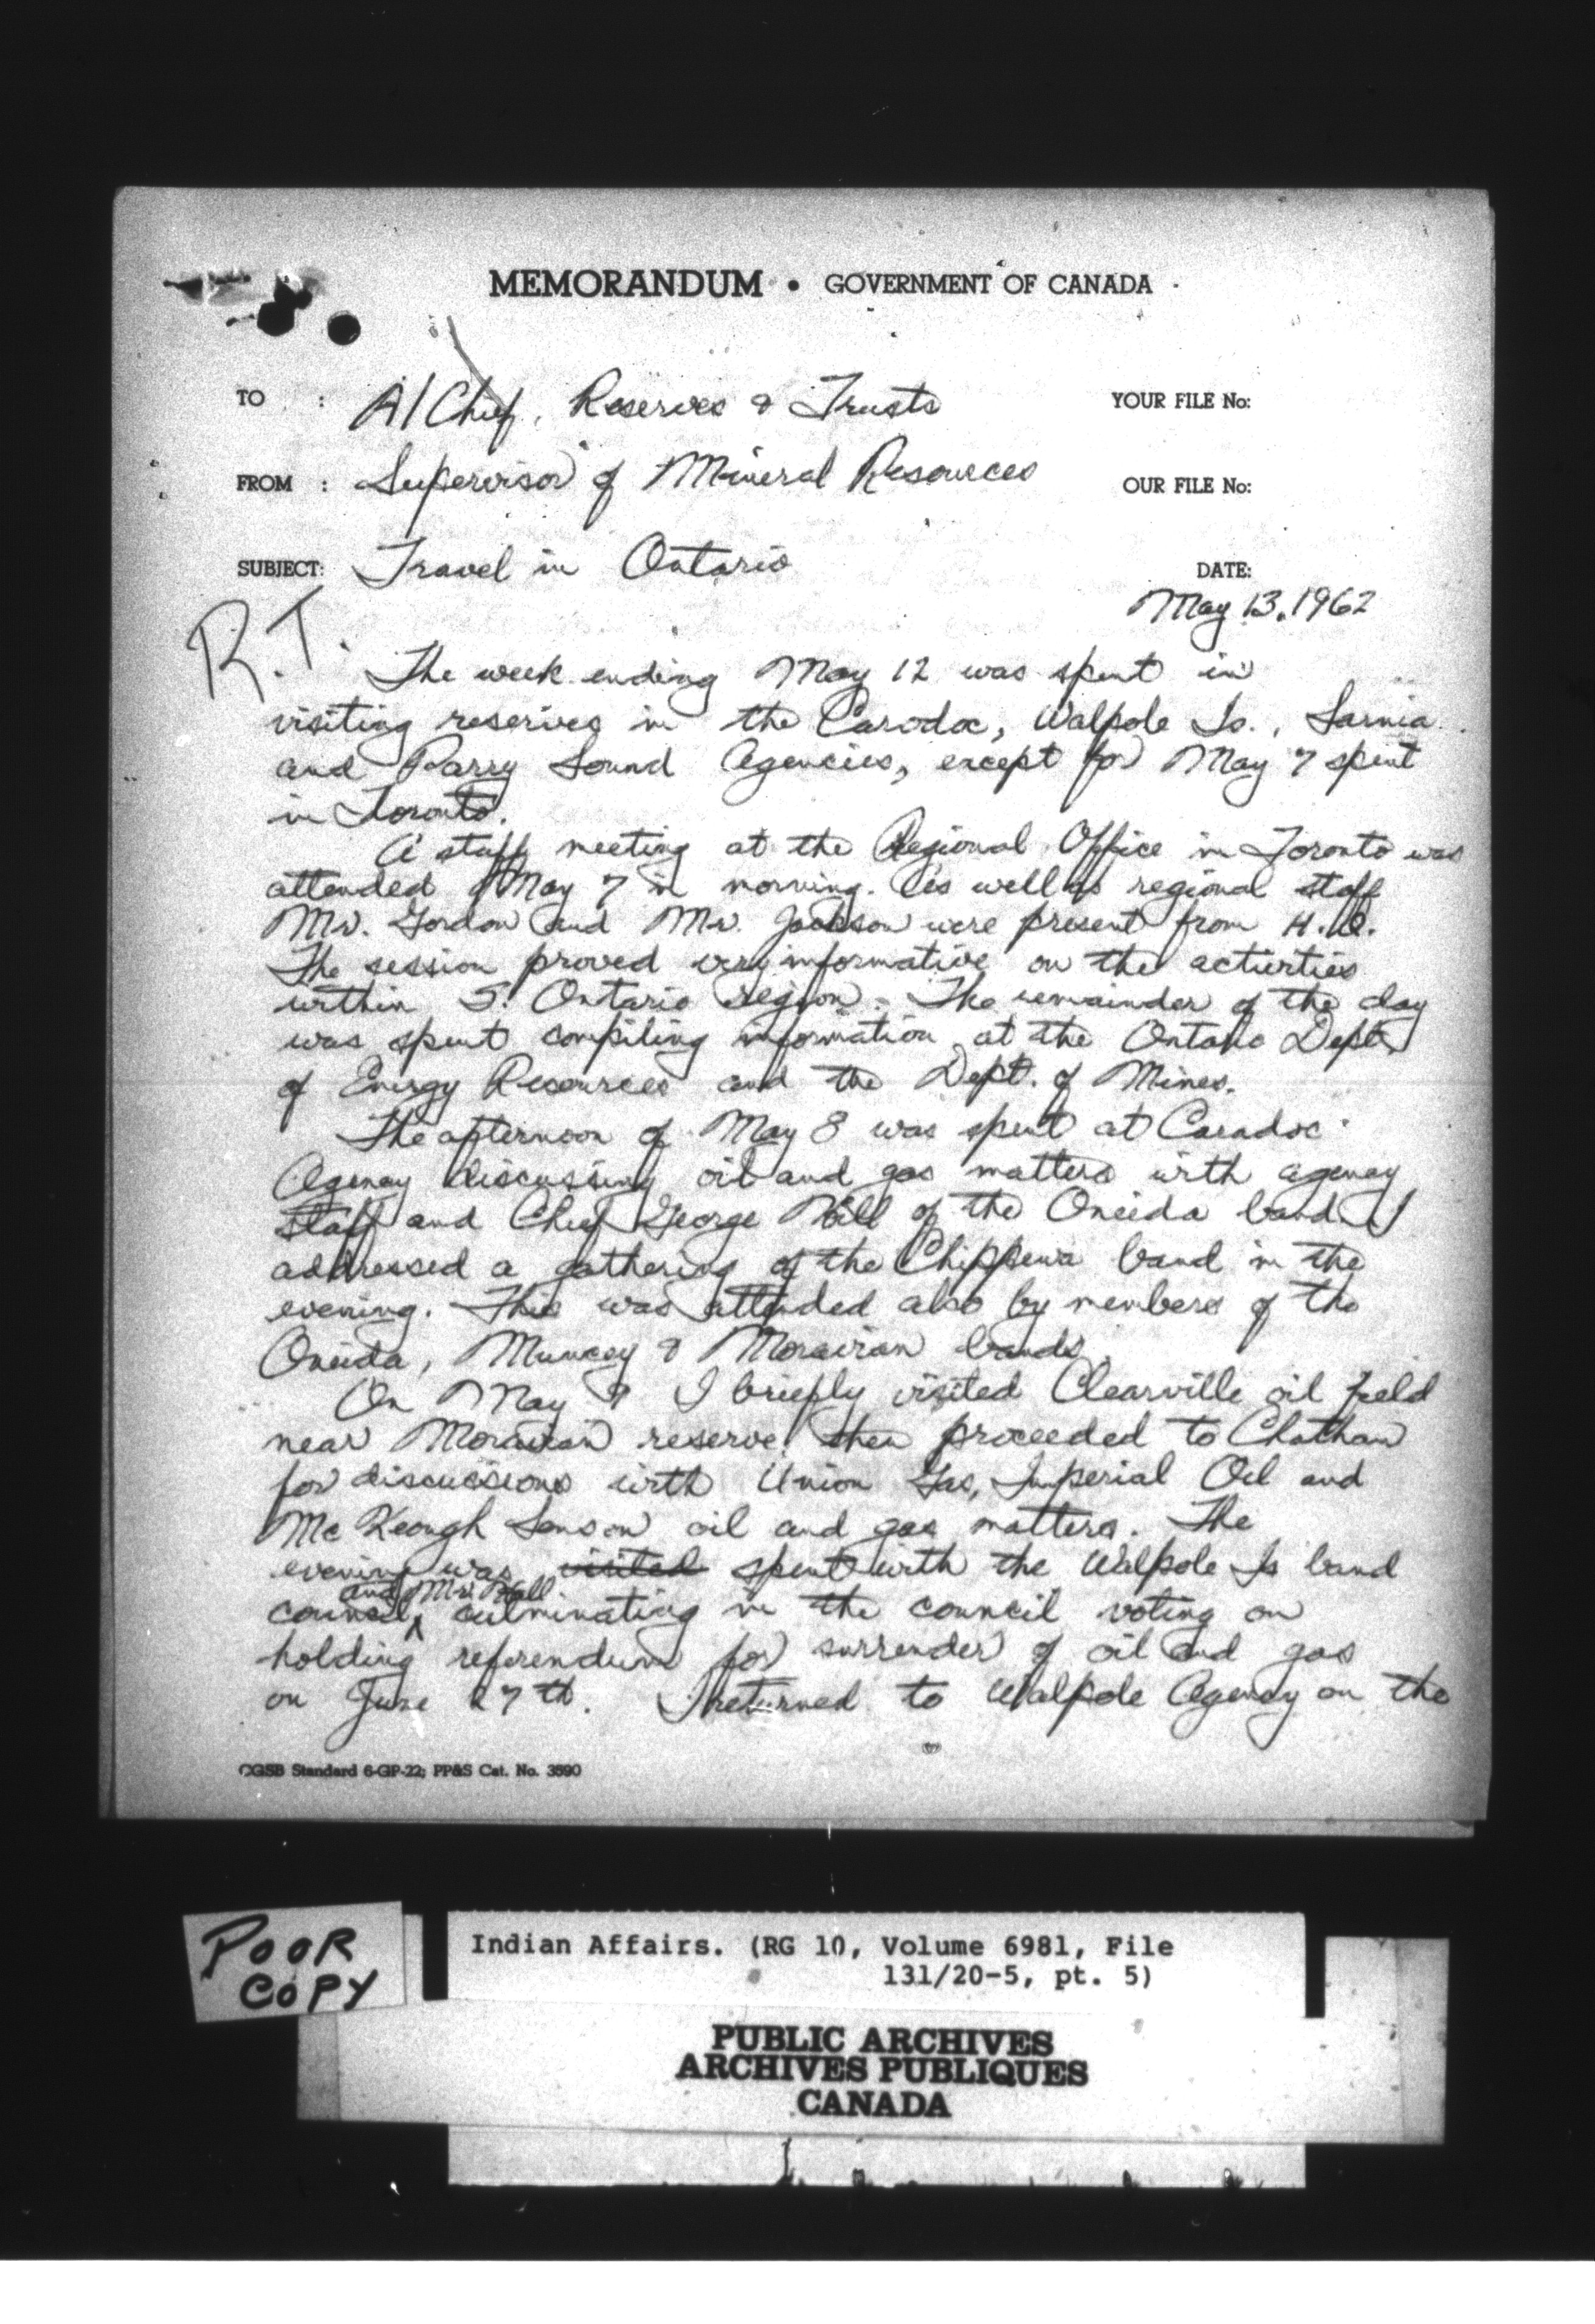 MEMORANDUM • GOVERNMENT OF CANADA
TO : A/Chief, Reserves & Trusts
YOUR FILE No:
FROM : Supervisor of Mineral Resources
OUR FILE No:
SUBJECT: Travel in Ontario
DATE:
May 13, 1962
R.T.
The week ending May 12 was spent in
visiting reserves in the Caradoc, Walpole Is., Sarnia
and Parry Sound Agencies, except for May 7 spent
in Toronto.
A staff meeting at the Regional Office in Toronto was
attended May 7 in morning. As well as regional staff
Mr. Gordon and Mr. Jackson were present from H.Q.
The session proved very informative on the activities
within S. Ontario region. The remainder of the day
was spent compiling information at the Ontario Dept.
of Energy Resources and the Dept. of Mines.
The afternoon of May 8 was spent at Caradoc
Agency discussing oil and gas matters with agency
staff and Chief George of the Oneida band. I
addressed a gathering of the Chippewa band in the
evening. This was attended also by members of the
Oneida, Muncey & Moravian bands.
On May 9 I briefly visited Clearville oil field
near Moravian reserve, then proceeded to Chatham
for discussions with Union Gas, Imperial Oil and
McKeough Senson oil and gas matters. The
evening was visited spent with the Walpole Is band
and Mr. Hall
council, culminating in the council voting on
holding referendum for surrender of oil and gas
on June 27th. I returned to Walpole Agency on the
CGSB Standard 6-GP-22; PP&S Cat. No. 3590
POOR
COPY
Indian Affairs. (RG 10, Volume 6981, File
131/20-5, pt. 5)
PUBLIC ARCHIVES
ARCHIVES PUBLIQUES
CANADA